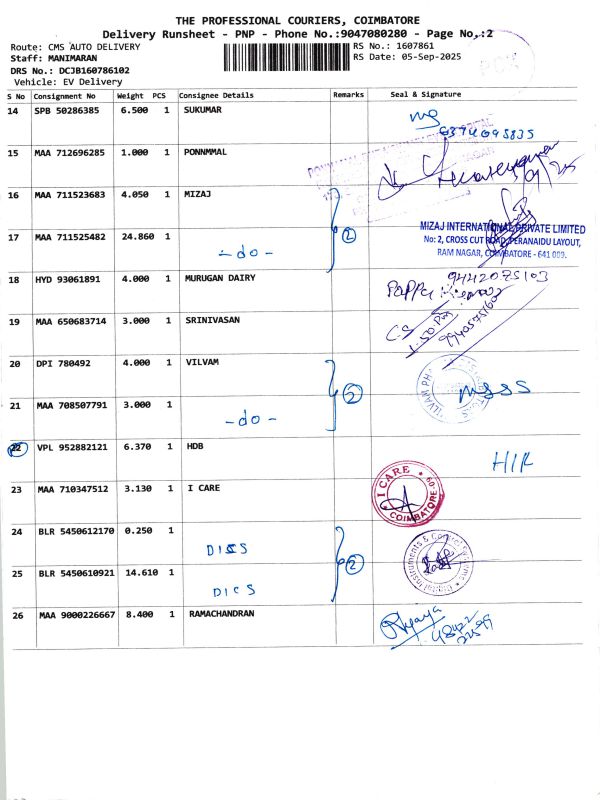 THE PROFESSIONAL COURIERS, COIMBATORE
Delivery Runsheet - PNP - Phone No.:9047080280 - Page No.:2
Route: CMS AUTO DELIVERY
Staff: MANIMARAN
DRS No.: DCJB160786102
Vehicle: EV Delivery
RS No.: 1607861
RS Date: 05-Sep-2025
S No Consignment No Weight PCS Consignee Details Remarks Seal & Signature
14 SPB 50286385 6.500 1 SUKUMAR
15 MAA 712696285 1.000 1 PONNMMAL
16 MAA 711523683 4.050 1 MIZAJ
17 MAA 711525482 24.860 1 -do- 2
MIZAJ INTERNATIONAL PRIVATE LIMITED
No: 2, CROSS CUT ROAD, PERANAIDU LAYOUT,
RAM NAGAR, COIMBATORE - 641 009.
18 HYD 93061891 4.000 1 MURUGAN DAIRY 9442075103
19 MAA 650683714 3.000 1 SRINIVASAN
20 DPI 780492 4.000 1 VILVAM
21 MAA 708507791 3.000 1 -do- 2
22 VPL 952882121 6.370 1 HDB
23 MAA 710347512 3.130 1 I CARE I CARE COIMBATORE
24 BLR 5450612170 0.250 1 DICS
25 BLR 5450610921 14.610 1 DICS 2
26 MAA 9000226667 8.400 1 RAMACHANDRAN